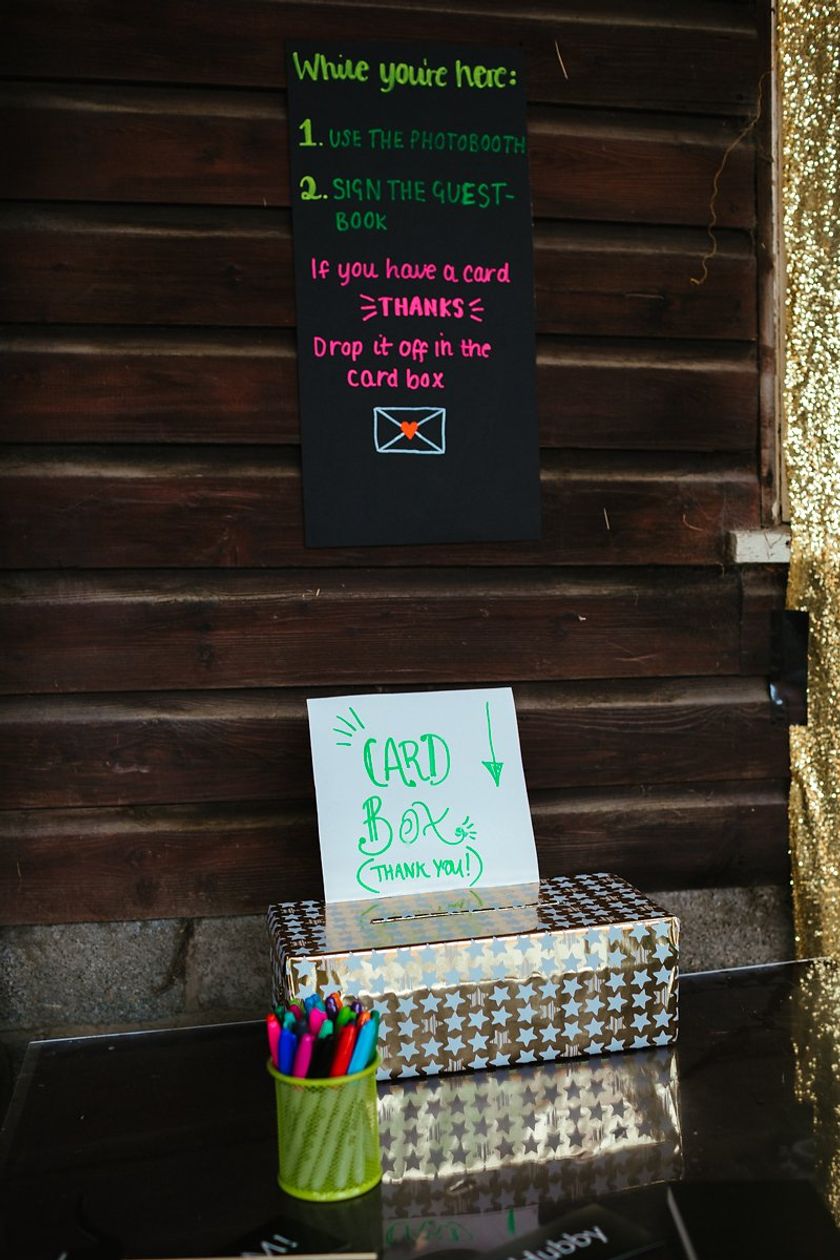 While you're here:
1. USE THE PHOTOBOOTH
2. SIGN THE GUEST-
BOOK
If you have a card
THANKS
Drop it off in the
card box
CARD
BOX
(THANK YOU!)